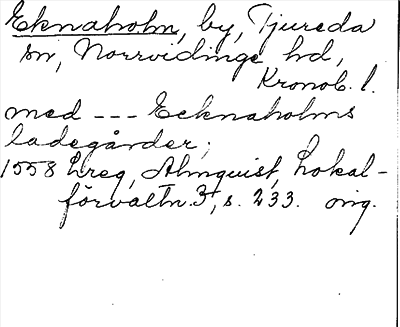 Eknaholm, by, Tjureda
sn, Norrvidinge hd,
Kronob. l.
med --- Ecknaholms
ladegårder;
1558 Lreg, Almquist, Lokal-
förvaltn. 3, s. 233. orig.